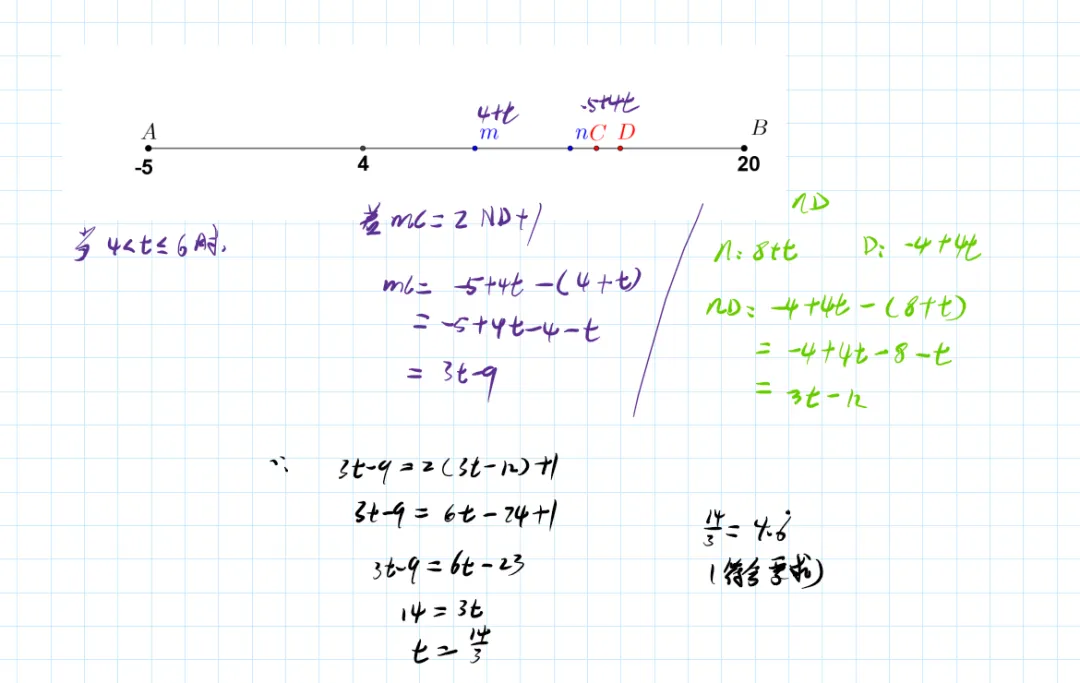 4+t
-5+4t
A m n C D B
-5 4 20
当 4<t≤6时,
若 mC=2ND+1
mC= -5+4t-(4+t)
= -5+4t-4-t
= 3t-9
nD
n: 8+t D: -4+4t
nD: -4+4t-(8+t)
= -4+4t-8-t
= 3t-12
∵ 3t-9=2(3t-12)+1
3t-9= 6t-24+1
3t-9=6t-23
14=3t
t=14/3
14/3= 4.6̇
(符合要求)